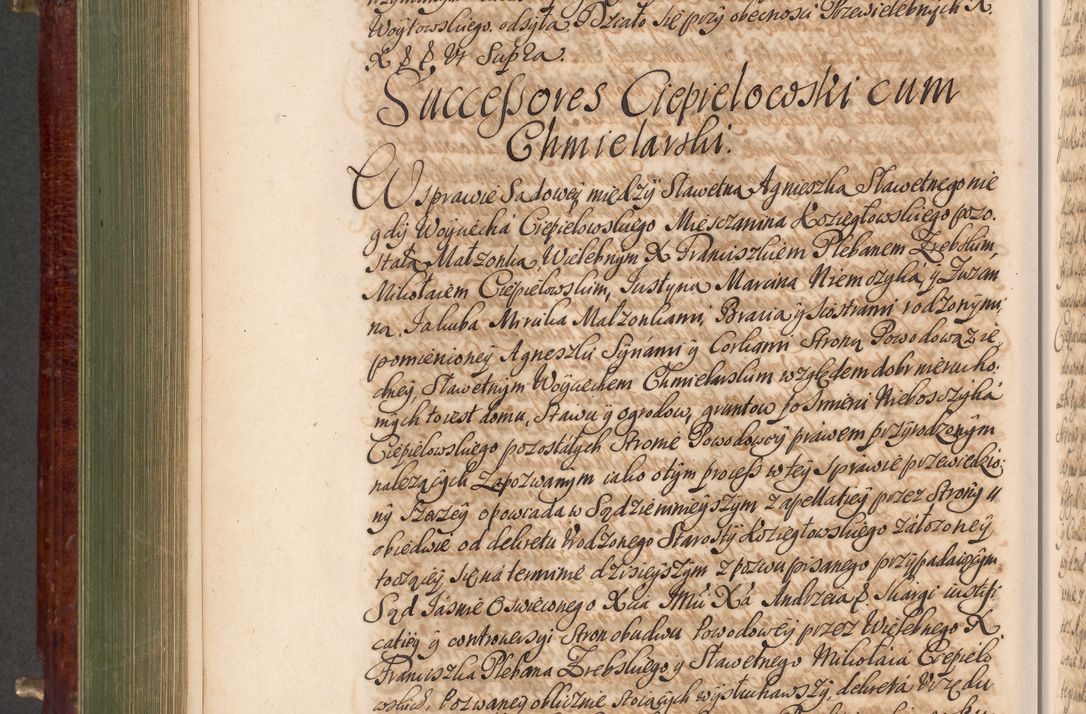 Woytowskiego. odsyła Działo się przy obecnosci Przewielebnych X.
X § § Vt Supra.
Successores Ciepielowski cum
Chmielarski.
W sprawie Sądowey między Sławetną Agnieszką Sławetnego nie
gdy Woyciecha Ciepielowskiego Miesczanina Koziegłowskiego pozo
stałą Małżonką, Wielebnym X Franciszkiem Plebanem Zrebskim
Mikołaiem Ciepielowskim, Justyną Marcina Niemczyka, y Zuzan
ną, Jakuba Mirulka Małżonkami, Bracią y Siostrami rodzonymi,
pomienioney Agneszki Synami y Corkami Stroną Powodową z ie
dney, Sławetnym Woyciechem Chmielarskim względem dobr nierucho
mych to iest domu, Stawu y ogrodow, gruntow po Smierci Nieboszczyka
Ciepielowskiego pozostałych Stronie Powodowey prawem przyrodzonym
należących Zapozwanym iako o tym process w tey Sprawie przewiedzio
ny szerzey opowiada w Sądzie ninieyszym z apellatiey przez Strony
obiedwie od dekretu Urodzonego Starosty Koziegłowskiego założoney
toczącey się na terminie dzisieyszym z pozwu pisanego przypadaiącym
Sąd Jasnie Oswieconego Xcia JMci Xa Andrzeia § Skargi iustifi
catiey y controwersyi Stron obudwu Powodowey przez Wielebnego X.
Franciszka Plebana Zrebskiego y Sławetnego Mikołaia Ciepielo
wskich, Pozwaney oblicznie stoiących wysłuchawszy, dekreta Urzędu